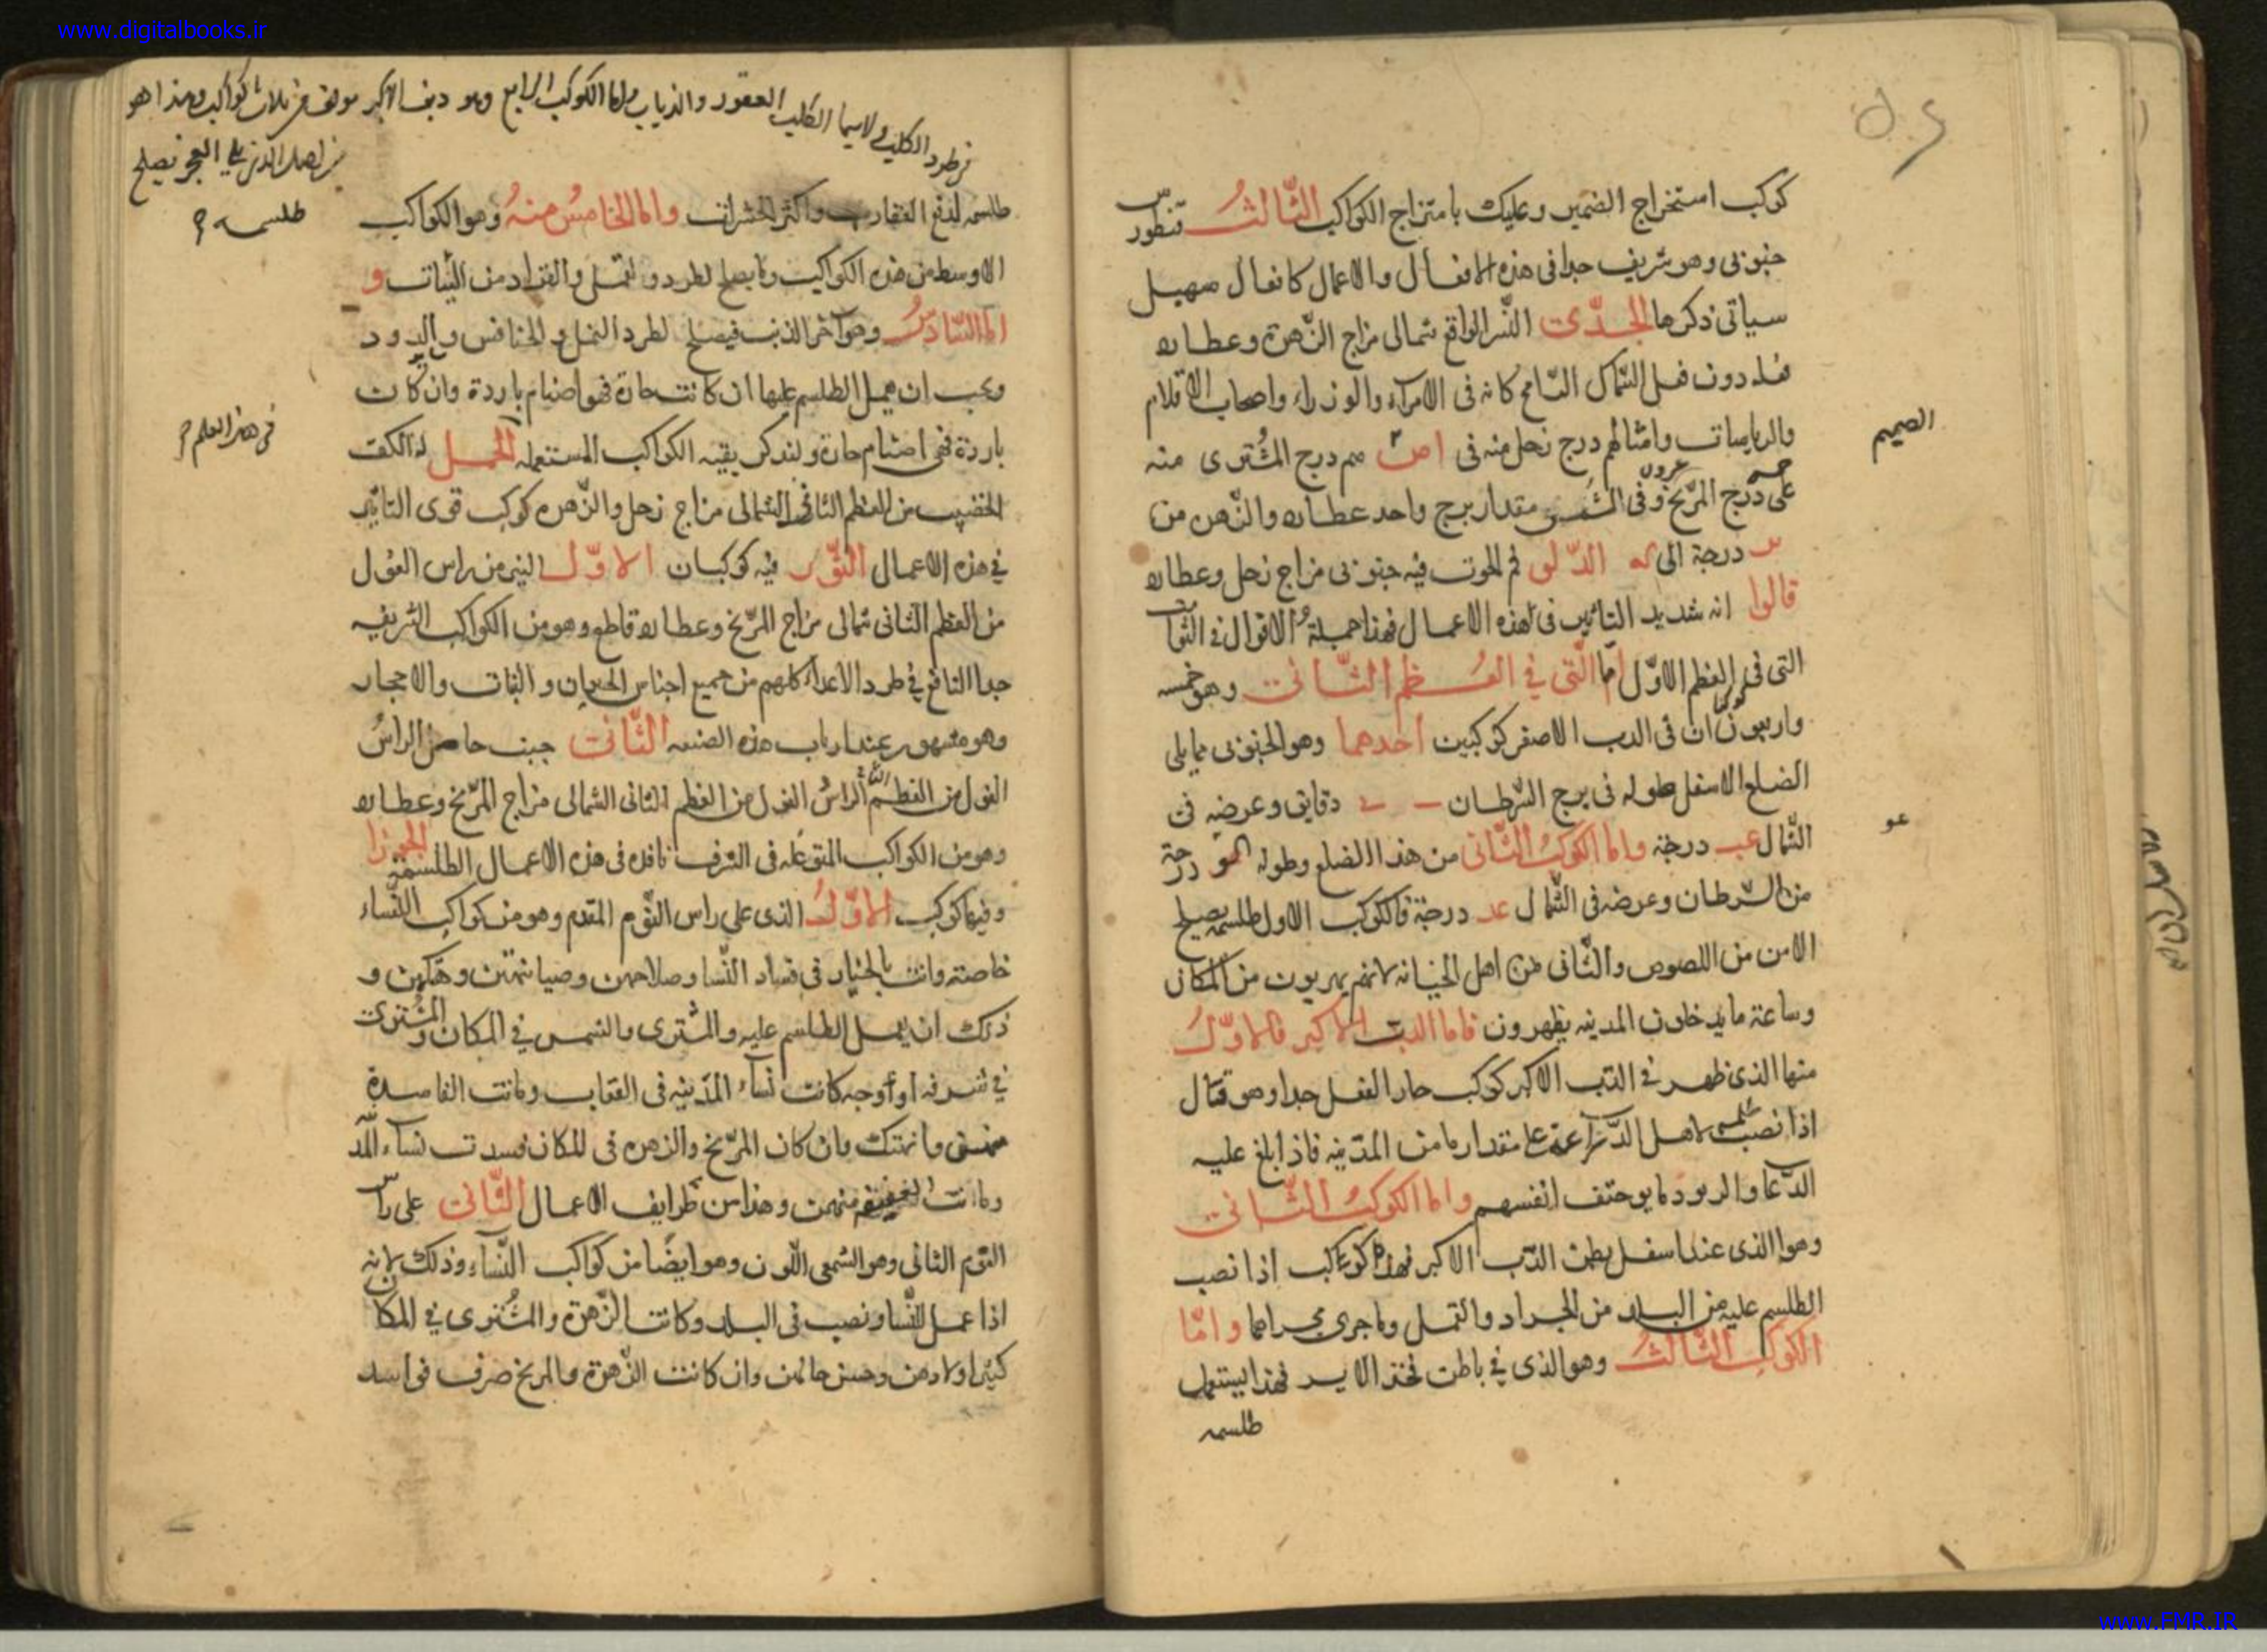 www.digitalbooks.ir
كوكب استخراج الضمير وعليك بامتزاج الكواكب الثالث قنطورس
جنوبى وهو شريف جدا فى هذه الافعال والاعمال كافعال سهيل
سياتى ذكرها الجدى النسر الواقع شمالى مزاج الزهرة وعطارد
فعله دون فعل السماك الرامح كانه فى الامراء والوزراء واصحاب الاقلام
والرياسات وامثالهم درج زحل منه فى درج المشترى منه
على درج المريخ وفى الشمس مقدار برج واحد عطارد والزهره من
درجة الى الدلو فم الحوت فيه جنوبى مزاج زحل وعطارد
قالوا انه شديد التاثير فى هذه الاعمال فهذا جملة الاقوال فى الثوابت
التى فى العظم الاول اما التى فى العظم الثانى وهو خمسه
واربعون ان فى الدب الاصغر كوكبين احدهما وهو الجنوبى مما يلى
الضلع الاسفل طوله فى برج السرطان دقايق وعرضه فى
الشمال عب درجة واما الكوكب الثانى من هذا الضلع وطوله درجة
من السرطان وعرضه فى الشمال عد درجة فالكوكب الاول طلسمه يصلح
الامن من اللصوص والثانى اهل الخيانه لانهم يهربون من المكان
وساعة ما يدخلون المدينه يظهرون فاما الدب الاكبر فالاول
منها الذى ظهر فى الدب الاكبر كوكب حار الفعل جدا وهو قتال
اذا نصب لاهل على مقدار ما من المدينه فاذا بلغ عليه
انفسهم واما الكوكب الثانى
وهو الذى عند اسفل بطن الدب الاكبر فهذا كوكب اذا نصب
الطلسم عليه من البلد من الجراد والنمل وما جرى مجراها واما
الكوكب الثالث وهو الذى فى باطن فخذ الايسر فهذا يستعمل
طلسمه
الصميم
عو
فى طرد الكلب ولاسيما الكلب العقور والذياب واما الكوكب الرابع وهو ذنب الاكبر مولف من ثلاث كواكب وهذا هو
يلى العجز يصلح
طلسمه
طلسمه لدفع العقارب واكثر الحشرات واما الخامس منه وهو الكواكب
الاوسط من هذه الكواكب وما يصلح لطرد والقراد من النبات و
اما السادس وهو اخر الذنب فيصلح لطرد النمل والخنافس والدود
ويجب ان يعمل الطلسم عليها ان كانت حارة فهو اصنام باردة وان كانت
باردة فهى اصنام حارة ولنذكر بقيه الكواكب المستعمله الحمل له الكف
الخضيب من العظم الثانى الشمالى مزاج زحل والزهره كوكب قوى التاثير
فى هذه الاعمال الثور فيه كوكبان الاول النير من راس الغول
من العظم الثانى شمالى مزاج المريخ وعطارد قاطع وهو من الكواكب الشريفه
جدا النافع فى طرد الاعداء كلهم من جميع اجناس الحيوان والنبات والاحجار
وهو مشهور عند ارباب هذه الصنعه الثانى جنب حامل الراس
الغول من العظم الراس الغول من العظم الثانى الشمالى مزاج المريخ وعطارد
وهو من الكواكب المتوغله فى الشرف نافذه فى هذه الاعمال الطلسميه الجوزا
وفيها كوكب الاول الذى على راس التوم المقدم وهو من كواكب النساء
خاصته وانت بالخيار فى فساد النسا وصلاحهن وصيانتهن وهتكهن و
ذلك ان يعمل الطلسم عليه والمشترى والشمس فى المكان والمشترى
فى شرفه او اوجه كانت نساء المدينه فى العقاب وماتت الفاسدة
منهن وان كان المريخ والزهره فى المكان فسدت نساء المد
وماتت العفيفه منهن وهذا من ظرايف الاعمال الثانى على راس
التوم الثانى وهو الشمعى اللون وهو ايضا من كواكب النساء وذلك لانه
اذا عمل للنسا ونصب فى البلد وكانت الزهرة والمشترى فى المكان
كثير اولادهن وحسن حالهن وان كانت الزهرة والمريخ صرف فى اسد
فى هذا العلم
www.FMR.IR